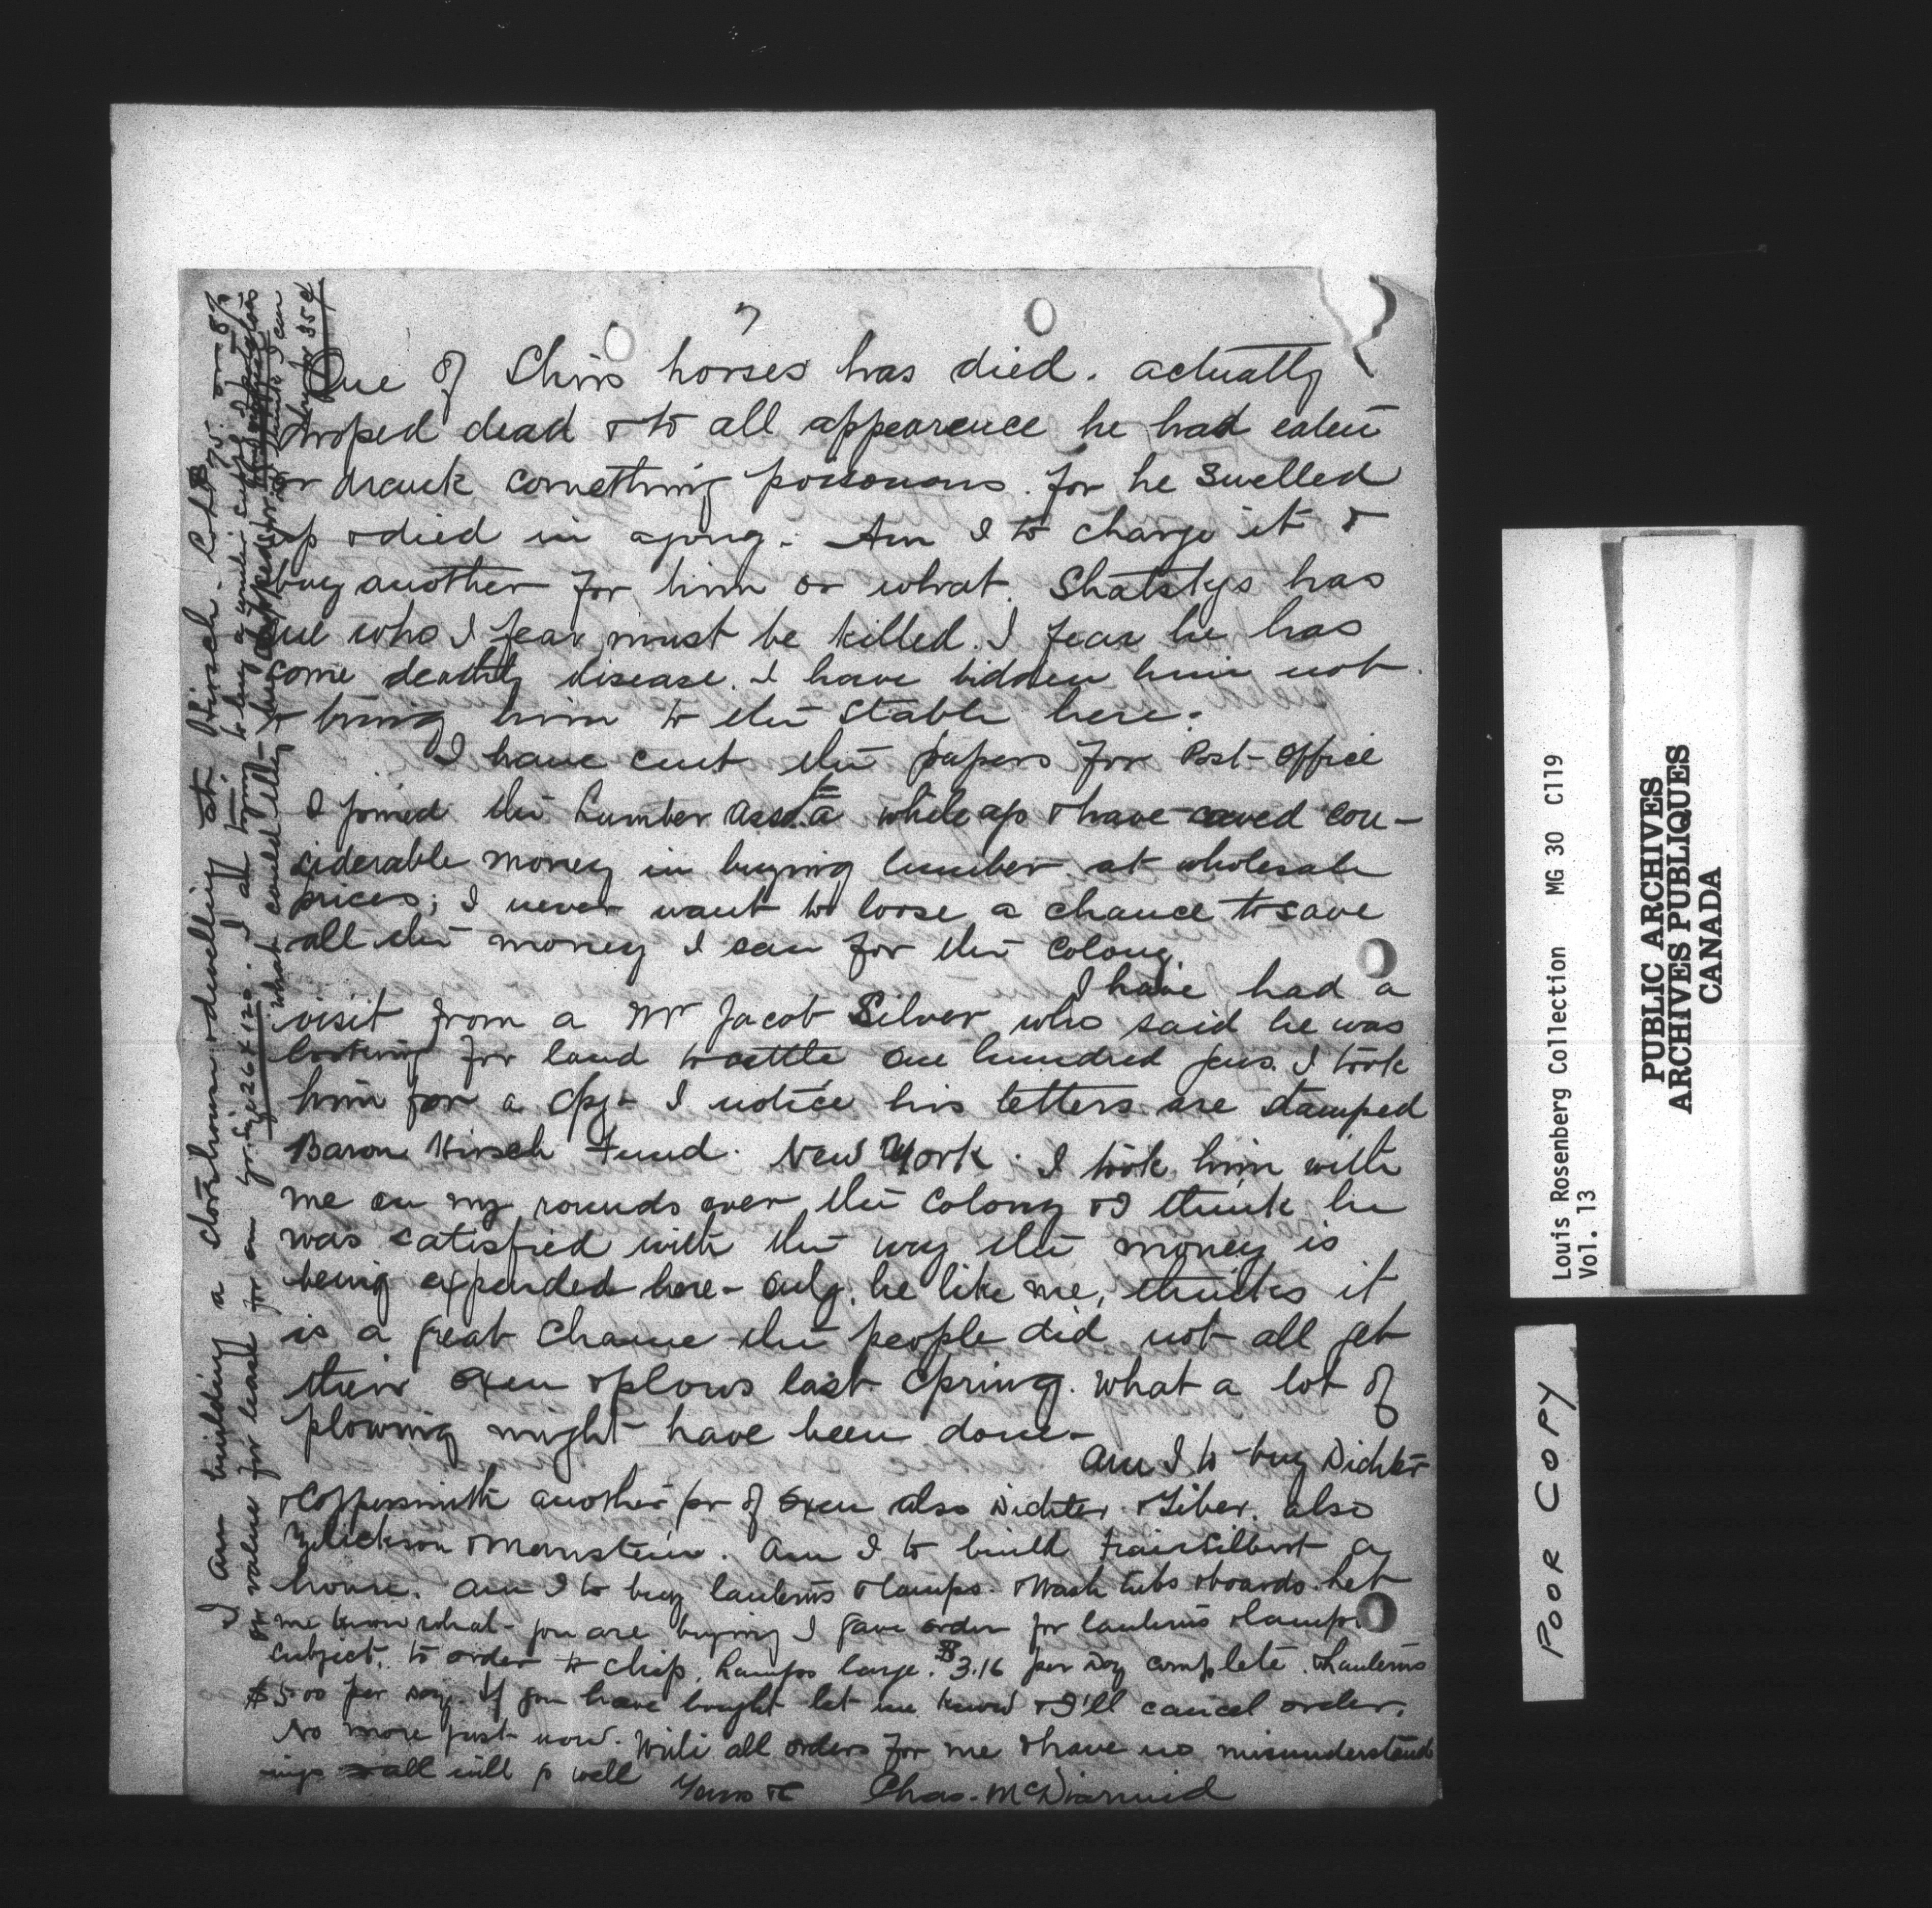 7
One of Shirs horses has died. actually
droped dead & to all appearence he had eaten
or drank something poisonous. for he swelled
up & died in agony. Am I to charge it &
buy another for him or what. Shatskys has
one who I fear must be killed. I fear he has
some deathly disease. I have bidden him not
to bring him to the stable here.
I have sent the papers for Post-Office
I joined the Lumber Assn a while ago & have saved con-
siderable money in buying lumber at wholesale
prices; I never want to loose a chance to save
all the money I can for the colony.
I have had a
visit from a Mr Jacob Silver who said he was
looking for land to settle one hundred Jews. I took
him for a spy - I notice his letters are stamped
Baron Hirsch Fund. New York. I took him with
me on my rounds over the Colony & I think he
was satisfied with the way the money is
being expended here - Only, he like me, thinks it
is a great shame the people did not all get
their oxen & plows last spring. What a lot of
plowing might have been done -
Am I to buy Dichter
& Coppersmith another pr of oxen also Dichter & Giber. also
Zelickson & Manstein. Am I to build a
house. Am I to buy lanterns & lamps. & Wash tubs & boards. Let
me know what you are buying I gave order for lanterns & lamps
subject to order to ship. Lamps large. $3.16 per Doz complete. & Lanterns
$5.00 per Doz. If you have bought let me know & I'll cancel order.
No more just now. Write all orders for me & have no misunderstand
ings & all will go well
Yours &c Chas. McDiarmid
I am building a store, house & dwelling at Hirsch. Cost $75. or 8%
on value for lease for one yr. Size 26 x 120. I am trying to buy
what could
Louis Rosenberg Collection MG 30 C119
Vol. 13
PUBLIC ARCHIVES
ARCHIVES PUBLIQUES
CANADA
POOR COPY